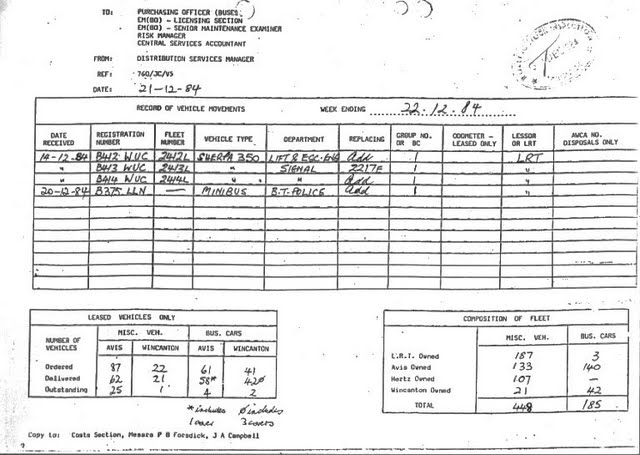 TO: PURCHASING OFFICER (BUSES)
EM(BO) - LICENSING SECTION
EM(BO) - SENIOR MAINTENANCE EXAMINER
RISK MANAGER
CENTRAL SERVICES ACCOUNTANT
FROM: DISTRIBUTION SERVICES MANAGER
REF: 760/JC/VS
DATE: 21-12-84
RECORD OF VEHICLE MOVEMENTS WEEK ENDING 22.12.84
DATE RECEIVED REGISTRATION NUMBER FLEET NUMBER VEHICLE TYPE DEPARTMENT REPLACING GROUP NO. OR BC ODOMETER - LEASED ONLY LESSOR OR LRT AWCA NO. DISPOSALS ONLY
14-12-84 B412 WUC 2412L SHERPA 350 LIFT & ESC-ENG Add 1 LRT
" B413 WUC 2413L — SIGNAL 2217F 1 "
" B414 WUC 2414L " " " Add 1 "
20-12-84 B375 LLN — MINIBUS B.T. POLICE Add 1 "
LEASED VEHICLES ONLY
NUMBER OF VEHICLES MISC. VEH. BUS. CARS
AVIS WINCANTON AVIS WINCANTON
Ordered 87 22 61 41
Delivered 62 21 58* 42ø
Outstanding 25 1 4 2
*includes øincludes
1 over 3 overs
COMPOSITION OF FLEET
MISC. VEH. BUS. CARS
L.R.T. Owned 187 3
Avis Owned 133 140
Hertz Owned 107 —
Wincanton Owned 21 42
TOTAL 448 185
Copy to: Costs Section, Messrs P B Forsdick, J A Campbell